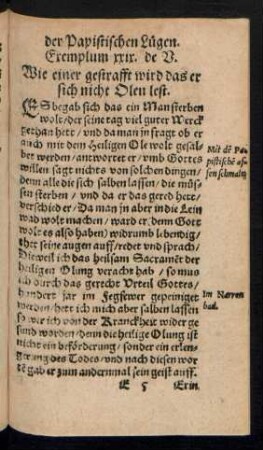 der Papistischen Lügen.
Exemplum xxix. de V.
Wie einer gestrafft wird das er
sich nicht Olen lest.
ES begab sich das ein Man sterben
wolt/ der seine tag viel guter Werck
gethan hett/ vnd da man jn fragt ob er
auch mit dem Heiligen Ole wolt gesal-
bet werden/ antwortet er/ vmb Gottes
willen sagt nichts von solchen dingen/
denn alle die sich salben lassen/ die müs-
sen sterben/ vnd da er das gered hett/
verschied er/ Da man jn aber in die Lein
wad wolt machen/ ward er/ denn Gott
wolt es also haben) widrumb lebendig/
thet seine augen auff/ redet vnd sprach/
Dieweil ich das heilsam Sacramēt der
heiligen Olung veracht hab/ so mus
ich durch das gerecht Vrteil Gottes/
hundert jar im Fegfewer gepeiniget
werden/ hett ich mich aber salben lassen
so wer ich von der Kranckheit wider ge
sund worden/ denn die heilige Olung ist
nicht ein beförderung/ sonder ein erlen-
gerung des Todes/ vnd nach diesen wor
tē gab er zum andernmal sein geist auff.
E 5 Exem
Mit dē Pa-
pistischē af-
fen schmaltz
Im Narren
bad.